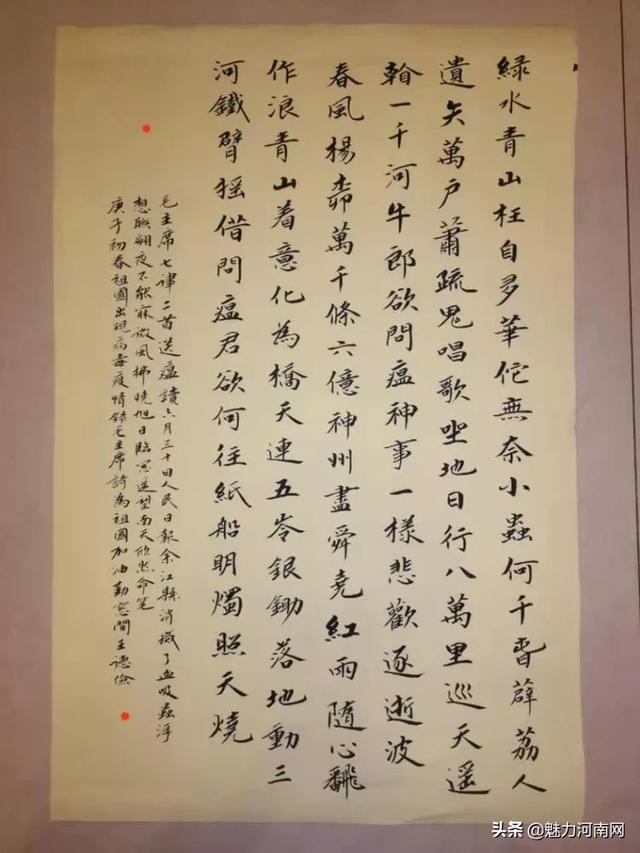 綠水青山枉自多華佗無奈小蟲何千邨薜荔人
遺矢萬户蕭疏鬼唱歌坐地日行八萬里巡天遥
看一千河牛郎欲問瘟神事一樣悲歡逐逝波
春風楊柳萬千條六億神州盡舜堯紅雨隨心翻
作浪青山着意化為橋天連五岺銀鋤落地動三
河鐵臂摇借問瘟君欲何往紙船明燭照天燒
毛主席七律二首送瘟讀六月三十日人民日報余江縣消滅了血吸蟲浮
想聯翩夜不能寐微風拂曉旭日臨窓遥望南天欣然命笔
庚子初春祖國出現病毒疫情錄毛主席詩為祖國加油勤窓閣王德儉
头条 @魅力河南网